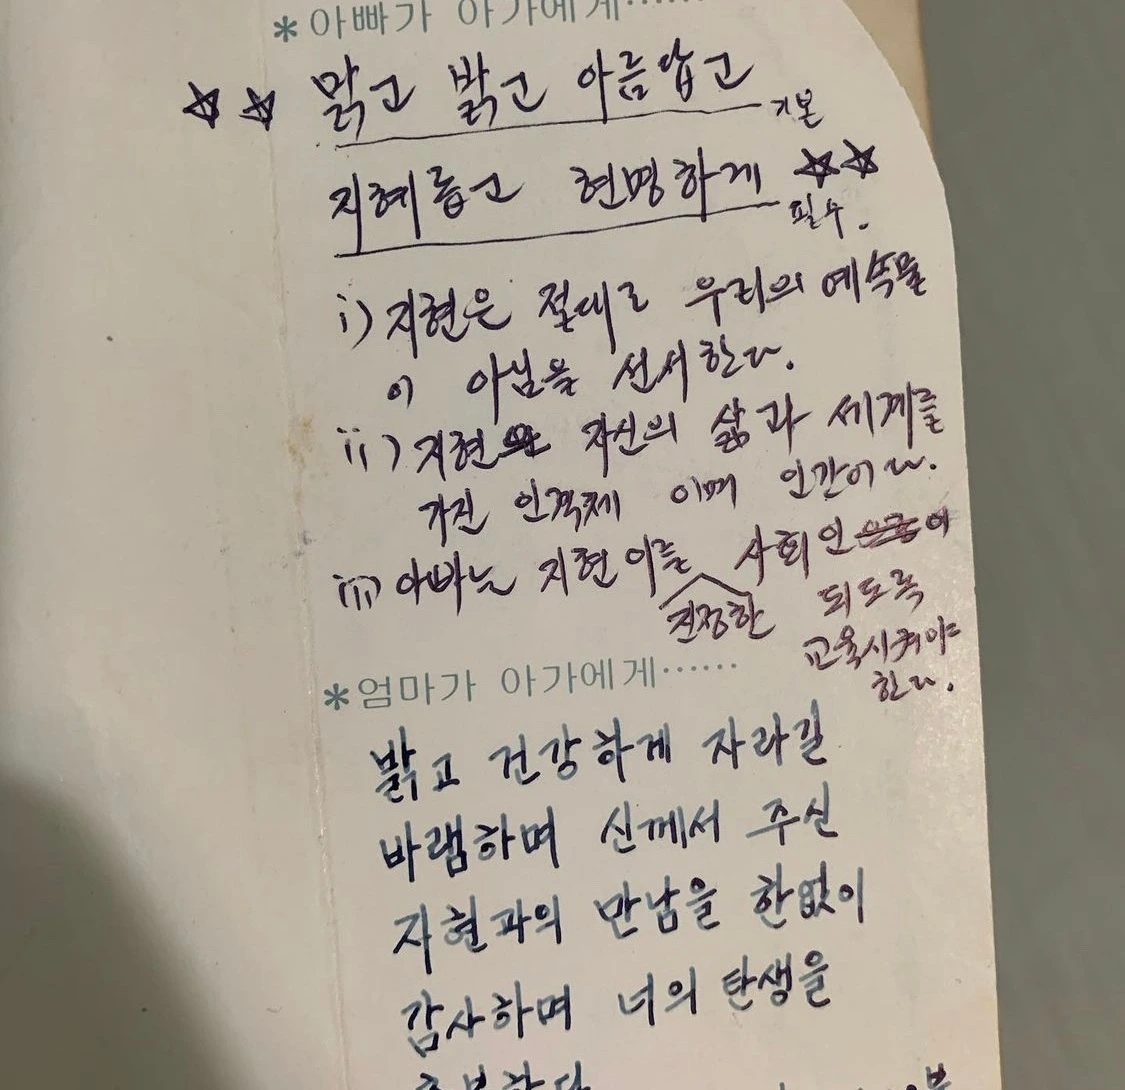 *아빠가 아가에게······
☆☆ 맑고 밝고 아름답고 기본
지혜롭고 현명하게 ☆☆ 필수.
i) 지현은 절대로 우리의 예속물
이 아님을 선서한다.
ii) 지현은 자신의 삶과 세계를
가진 인격체 이며 인간이다.
iii) 아빠는 지현이를 진정한 사회인이
되도록
교육시켜야
한다.
*엄마가 아가에게······
밝고 건강하게 자라길
바램하며 신께서 주신
지현과의 만남을 한없이
감사하며 너의 탄생을